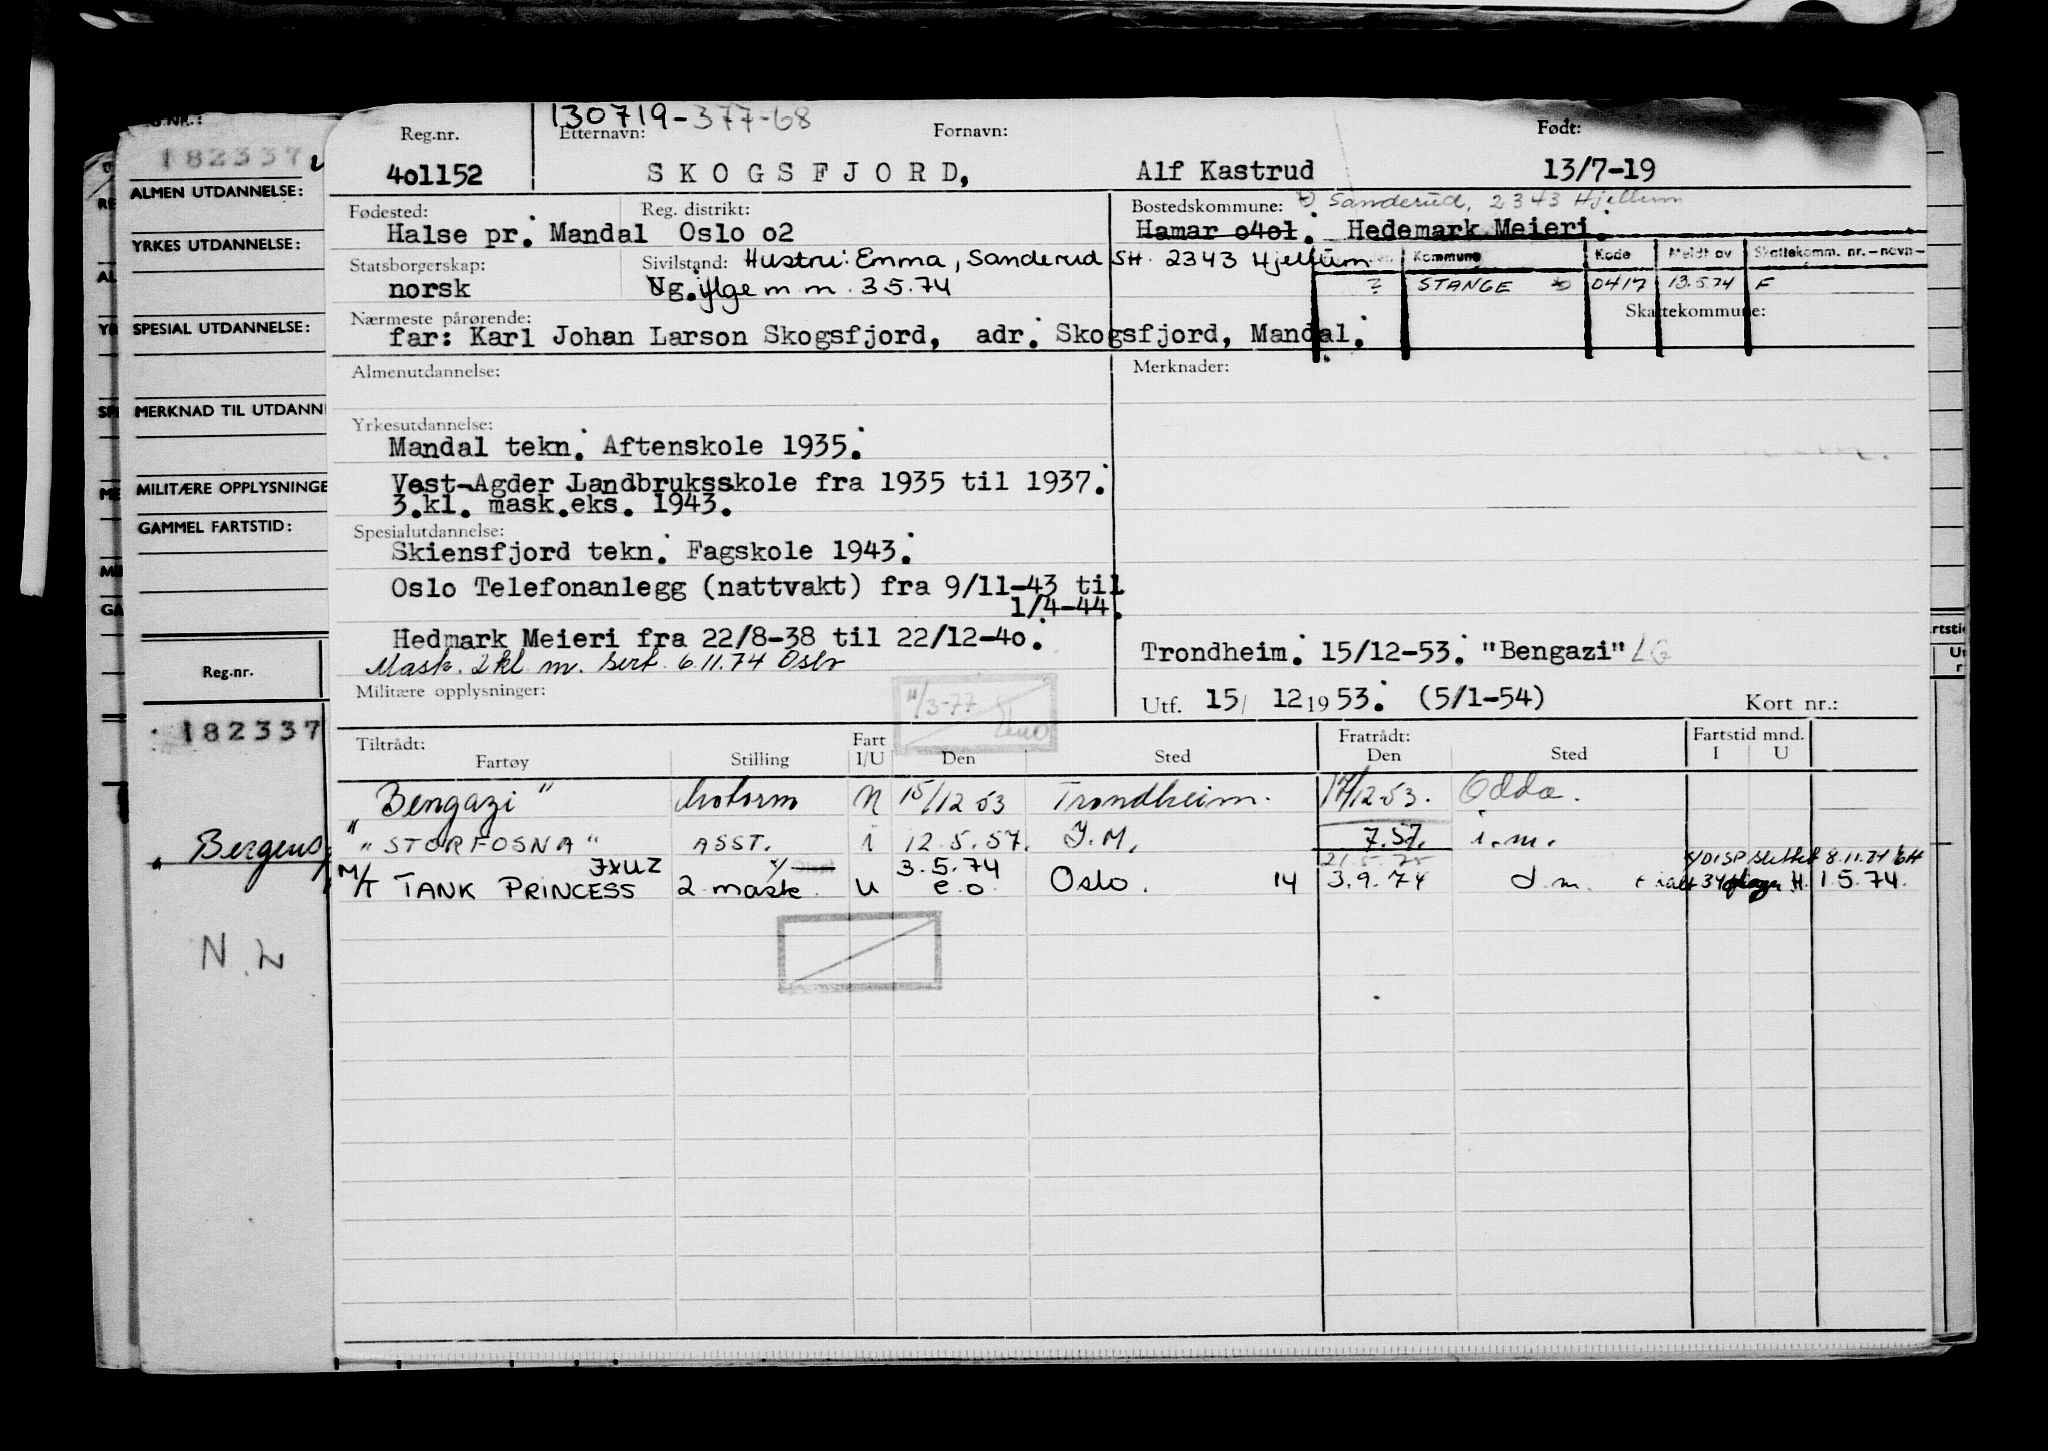 130719-377-68
Reg.nr. Etternavn: Fornavn: Født:
401152 SKOGSFJORD, Alf Kastrud 13/7-19
Fødested: Reg. distrikt: Bostedskommune: Sanderud, 2343 Hjellum
Halse pr. Mandal Oslo 02 Hamar 0401. Hedemark Meieri.
Statsborgerskap: Sivilstand: Hustru: Emma, Sanderud SH. 2343 Hjellum Kommune Kode Meldt av Skattekomm. nr. - navn -
norsk Ug. iflge m m. 3.5.74 ? STANGE 0417 13.5.74 F
Nærmeste pårørende: Skattekommune:
far: Karl Johan Larson Skogsfjord, adr. Skogsfjord, Mandal.
Almenutdannelse: Merknader:
Yrkesutdannelse:
Mandal tekn. Aftenskole 1935.
Vest-Agder Landbruksskole fra 1935 til 1937.
3.kl. mask.eks. 1943.
Spesialutdannelse:
Skiensfjord tekn. Fagskole 1943.
Oslo Telefonanlegg (nattvakt) fra 9/11-43 til
1/4-44.
Hedmark Meieri fra 22/8-38 til 22/12-40.
Mask. 2 kl m. sert. 6.11.74 Oslo
Trondheim. 15/12-53. "Bengazi" LG
Militære opplysninger:
11/3-77
Utf. 15/ 12 1953. (5/1-54) Kort nr.:
Tiltrådt: Fart Fratrådt: Fartstid mnd.
Fartøy Stilling I/U Den Sted Den Sted I U
"Bengazi" Motorm N 15/12 53 Trondheim. 17/12-53. Odda.
"STORFOSNA" ASST. i 12.5.57. I.M. 7.57. i.m.
JXUZ 3.5.74 21.5.75 DISP slettet 8.11.74
M/T TANK PRINCESS 2 mask. U e.o. Oslo. 14 3.9.74 d.m. 1.5.74.
REG.NR.:
182337
ALMEN UTDANNELSE:
YRKES UTDANNELSE:
SPESIAL UTDANNELSE:
MERKNAD TIL UTDANN
MILITÆRE OPPLYSNINGE
GAMMEL FARTSTID:
Reg.nr.
182337
Bergens
N.L